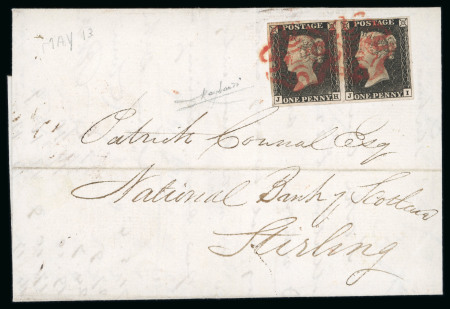 MAY 13
POSTAGE POSTAGE
J ONE PENNY H J ONE PENNY I
Patrick Connal Esq
National Bank of Scotland
Stirling